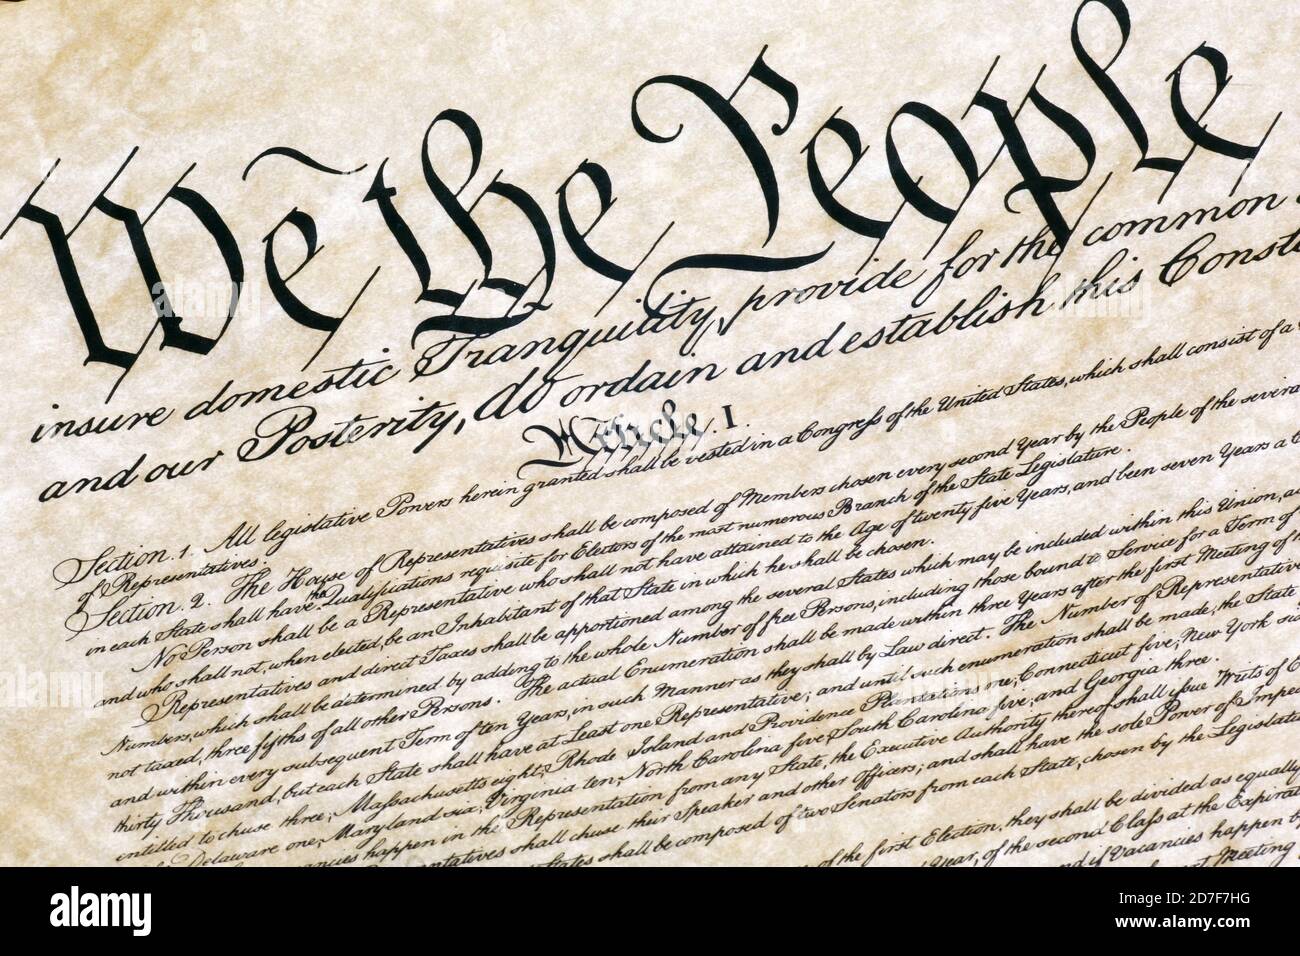 We the People
insure domestic Tranquility, provide for the common
and our Posterity, do ordain and establish this Const
Article. I.
Section. 1. All legislative Powers herein granted shall be vested in a Congress of the United States, which shall consist of a
of Representatives.
Section. 2. The House of Representatives shall be composed of Members chosen every second Year by the People of the several
in each State shall have the Qualifications requisite for Electors of the most numerous Branch of the State Legislature.
No Person shall be a Representative who shall not have attained to the Age of twenty five Years, and been seven Years a
and who shall not, when elected, be an Inhabitant of that State in which he shall be chosen.
Representatives and direct Taxes shall be apportioned among the several States which may be included within this Union, ac
Numbers, which shall be determined by adding to the whole Number of free Persons, including those bound to Service for a Term of
not taxed, three fifths of all other Persons. The actual Enumeration shall be made within three Years after the first Meeting of
and within every subsequent Term of ten Years, in such Manner as they shall by Law direct. The Number of Representatives
thirty Thousand, but each State shall have at Least one Representative; and until such enumeration shall be made, the State
entitled to chuse three, Massachusetts eight, Rhode Island and Providence Plantations one, Connecticut five, New York six
Delaware one, Maryland six, Virginia ten, North Carolina five, South Carolina five, and Georgia three.
ancies happen in the Representation from any State, the Executive Authority thereof shall issue Writs of E
sentatives shall chuse their Speaker and other Officers; and shall have the sole Power of Impe
States shall be composed of two Senators from each State, chosen by the Legislatu
of the first Election, they shall be divided as equally
Year, of the second Class at the Expirat
nd if Vacancies happen b
Meeting
alamy
Image ID: 2D7F7HG
www.alamy.com